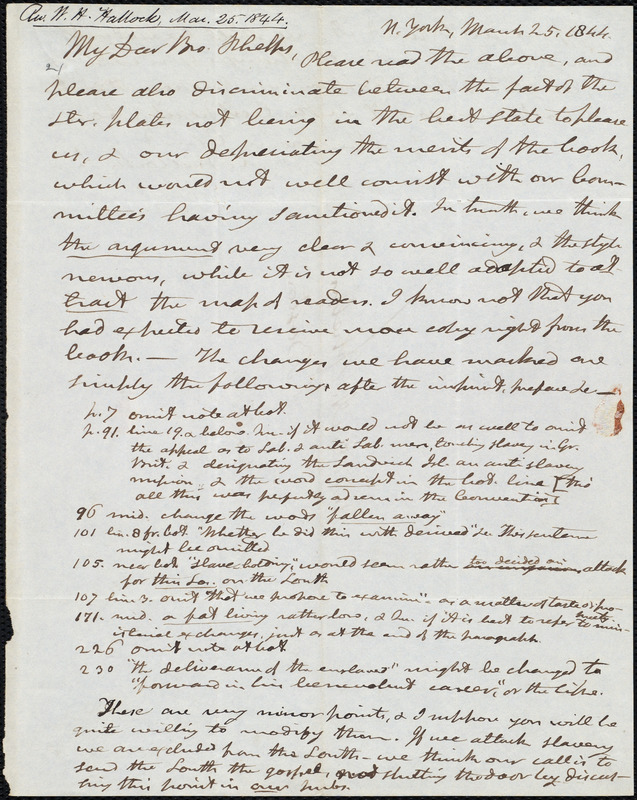 Rev. W. A. Hallock, Mar. 25. 1844.
N. York, March 25, 1844.
My Dear Bro Phelps, Please read the above, and
please also discriminate between the fact of the
ster. plates not being in the best state to please
us, & our depreciating the merits of the book,
which would not well consist with our Com-
mittee's having sanctioned it. In truth, we think
the argument very clear & convincing, & the style
nervous, while it is not so well adapted to at-
tract the mass of readers. I know not that you
had expected to receive more copy right from the
book. — The changes we have marked are
simply the following, after the imprint, preface &c —
p. 7 omit note at bot.
p. 91. line 19. & below. if it would not be as well to omit
the appeal as to Sab. & anti Sab. men, touching slavery in Gr.
Brit. & designating the Sandwich Isl. an anti slavery
mission, & the word concept in the bot. line [tho
all this was perfectly in the Convention]
96 mid. change the words "fallen away"
101 lin. 8 fr. bot. "Whether he did this with &c. This sentence
might be omitted
105. near bot. "slave holding", would seem rather too decided an attack
for this Soc. on the South
107 lin. 3. omit "that we propose to examine" as a matter of taste &
171. mid. a fat living rather low, & if it is best to refer to
exchanges, just as at the end of the paragraph.
226 omit note at bot
230 "the deliverance of the enslaved" might be changed to
"forward in his benevolent career," or the like.
These are very minor points, & I suppose you will be
quite willing to modify them. If we attack slavery
we are excluded from the South – we think our call is to
send the South the gospel, shutting the door by discuss-
ing this point in our pubs.